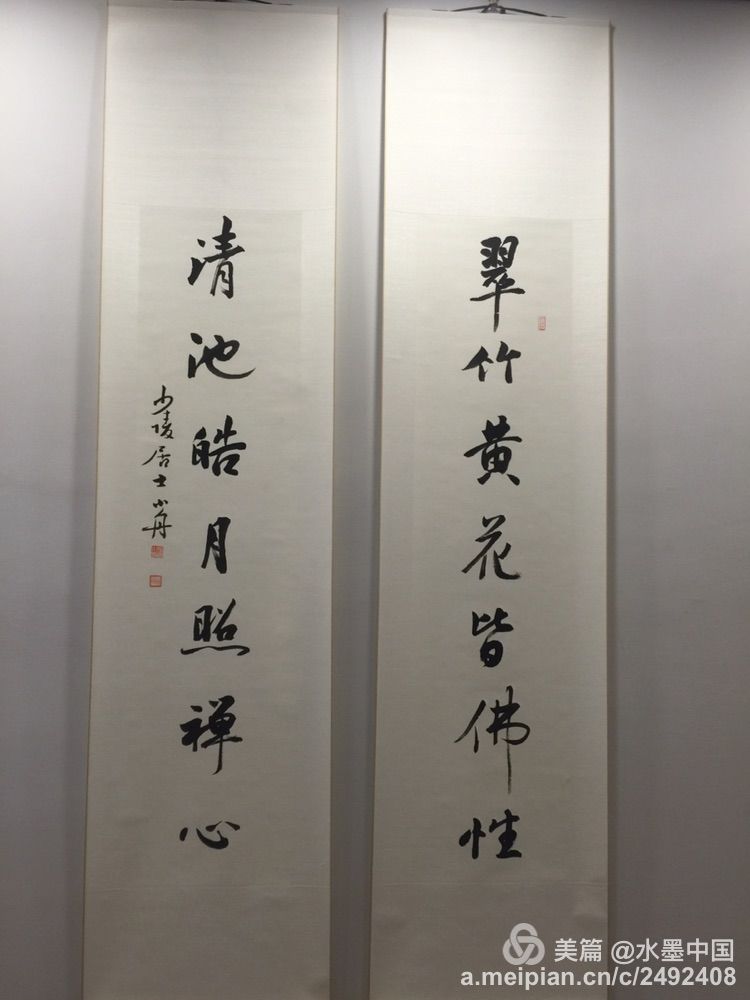 翠竹黄花皆佛性
清池皓月照禅心
少陵居士小舟
美篇 @水墨中国
a.meipian.cn/c/2492408